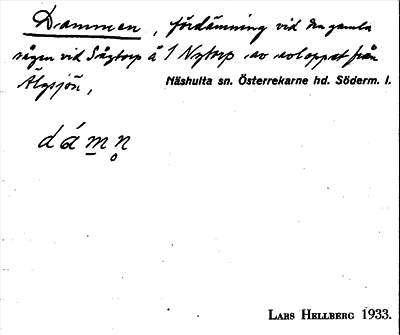 Dammen, fördämning vid den gamla
sågen vid Sågtorp å 1 Nytorp av avloppet från
Älgsjön,
Näshulta sn. Österrekarne hd. Söderm. l.
dámn̥
LARS HELLBERG 1933.